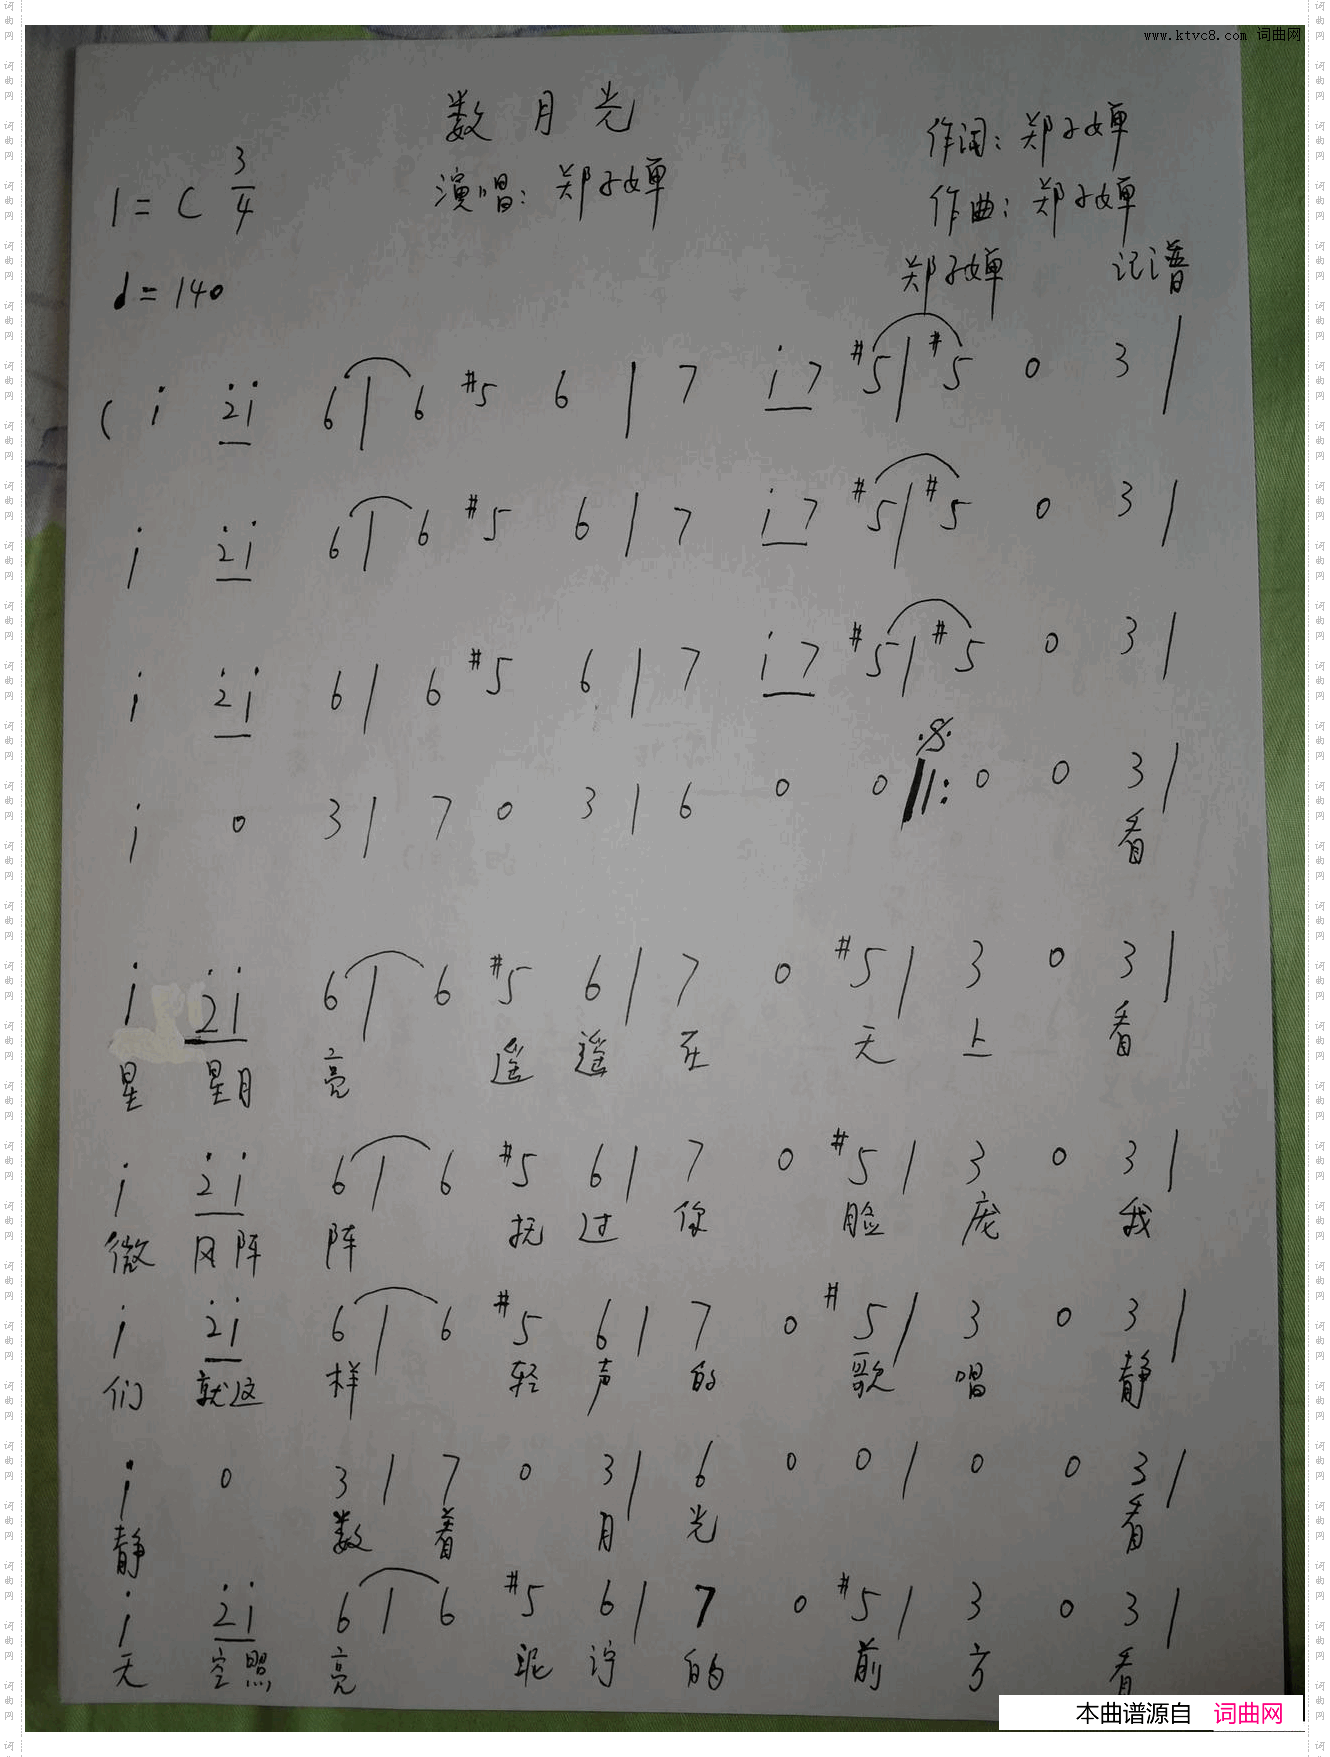 www.ktvc8.com 词曲网
数月光
作词：郑子婵
1=C 3/4
演唱：郑子婵
作曲：郑子婵
郑子婵 记谱
♩=140
( i̇ 2̇i̇ 6 | 6 #5 6 | 7 i̇7 #5 | #5 0 3 |
i̇ 2̇i̇ 6 | 6 #5 6 | 7 i̇7 #5 | #5 0 3 |
i̇ 2̇i̇ 6 | 6 #5 6 | 7 i̇7 #5 | #5 0 3 |
i̇ 0 3 | 7 0 3 | 6 0 0 ‖: 0 0 3 |
看
i̇ 2̇i̇ 6 | 6 #5 6 | 7 0 #5 | 3 0 3 |
星 星月 亮 遥 遥 在 天 上 看
i̇ 2̇i̇ 6 | 6 #5 6 | 7 0 #5 | 3 0 3 |
微 风阵 阵 抚 过 你 脸 庞 我
i̇ 2̇i̇ 6 | 6 #5 6 | 7 0 #5 | 3 0 3 |
们 就这 样 轻 声 的 歌 唱 静
i̇ 0 3 | 7 0 3 | 6 0 0 | 0 0 3 |
静 数 着 月 光 看
i̇ 2̇i̇ 6 | 6 #5 6 | 7 0 #5 | 3 0 3 |
天 空照 亮 泥 泞 的 前 方 看
本曲谱源自 词曲网